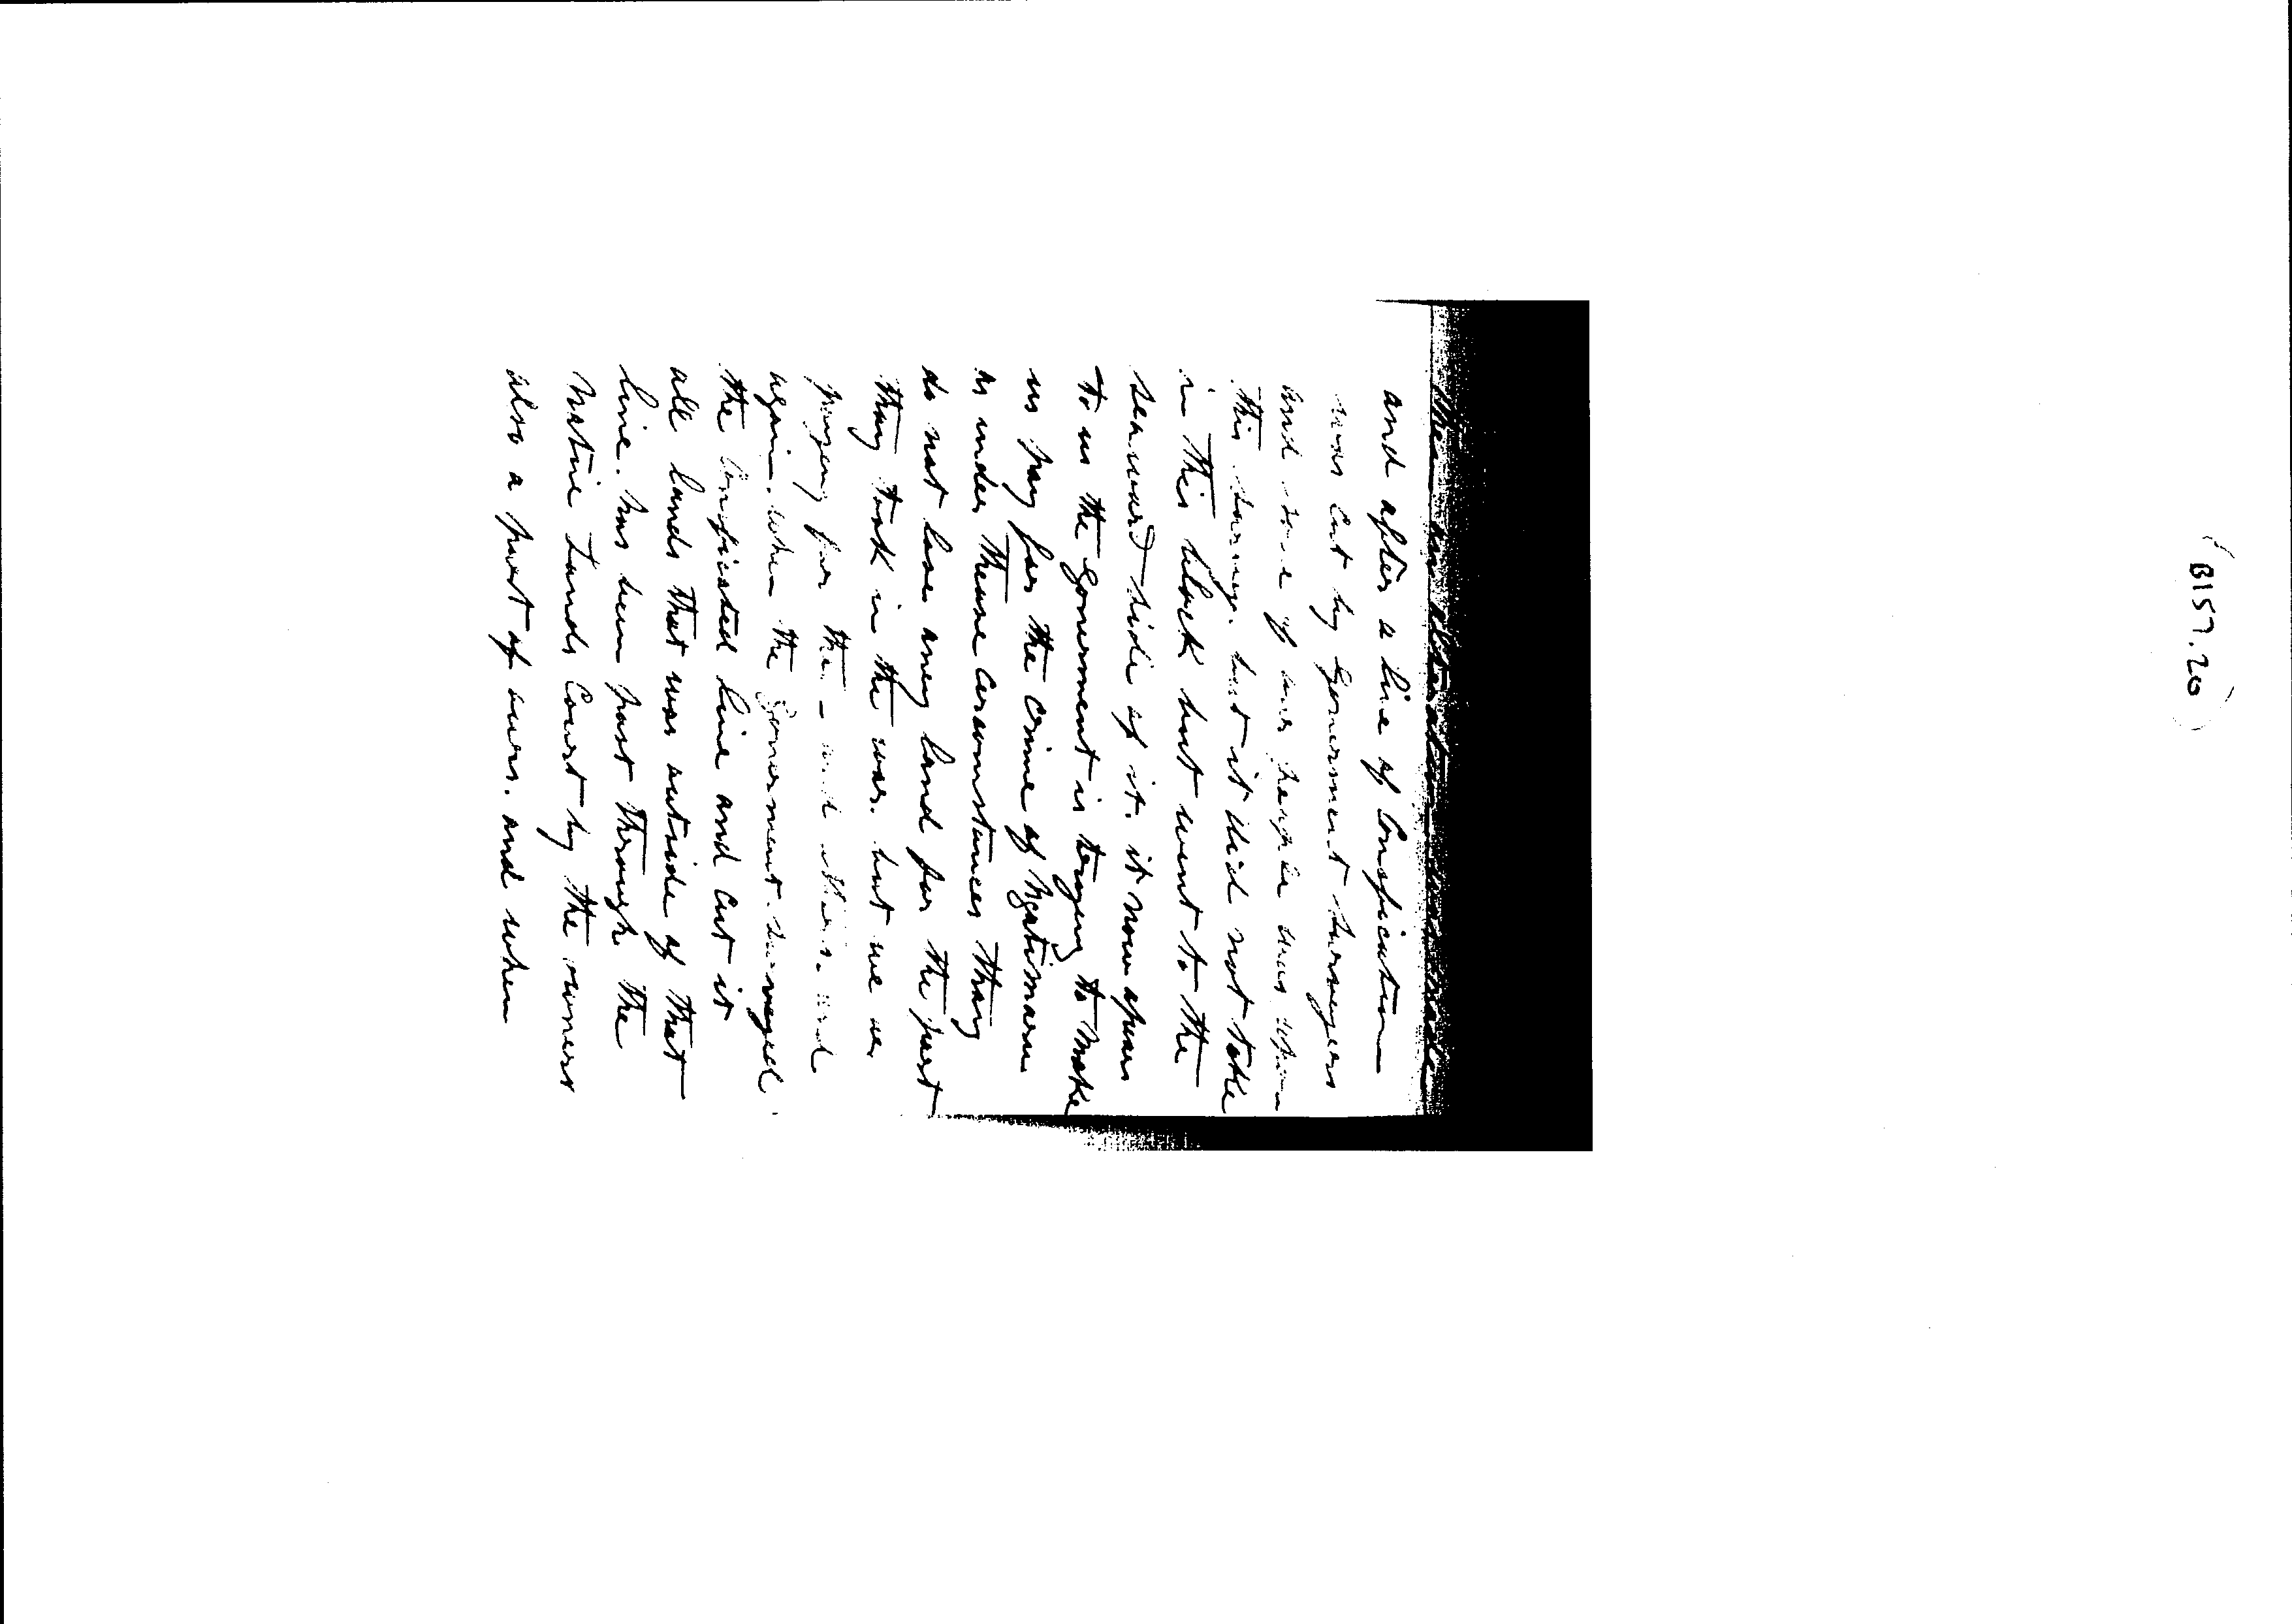 (B157.20)
and after a line of Confiscation
was cut by Goverment Surveyers
and some of our people was when
this Survey. but it did not take
in This block but went to the
seaward side of it. it now apears
to us the Goverment is trying to make
us pay for the crime of Ngatimaru
as under These cercumstances Thay
do not lose aney land for the part
Thay took in the war. but we are
payeng for the and others. and
again. when the Goverment. Surveyed
the Confiscated line and cut it
all lands that was outside of that
line. has been past Through the
Native Lands Court by the owners
also a part of ours. and when